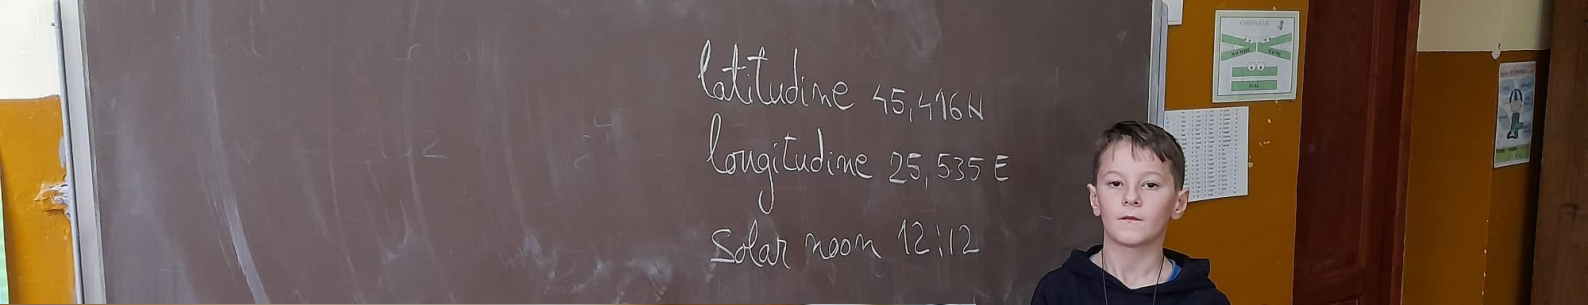 latitudine 45,416 N
longitudine 25,535 E
solar noon 12:12